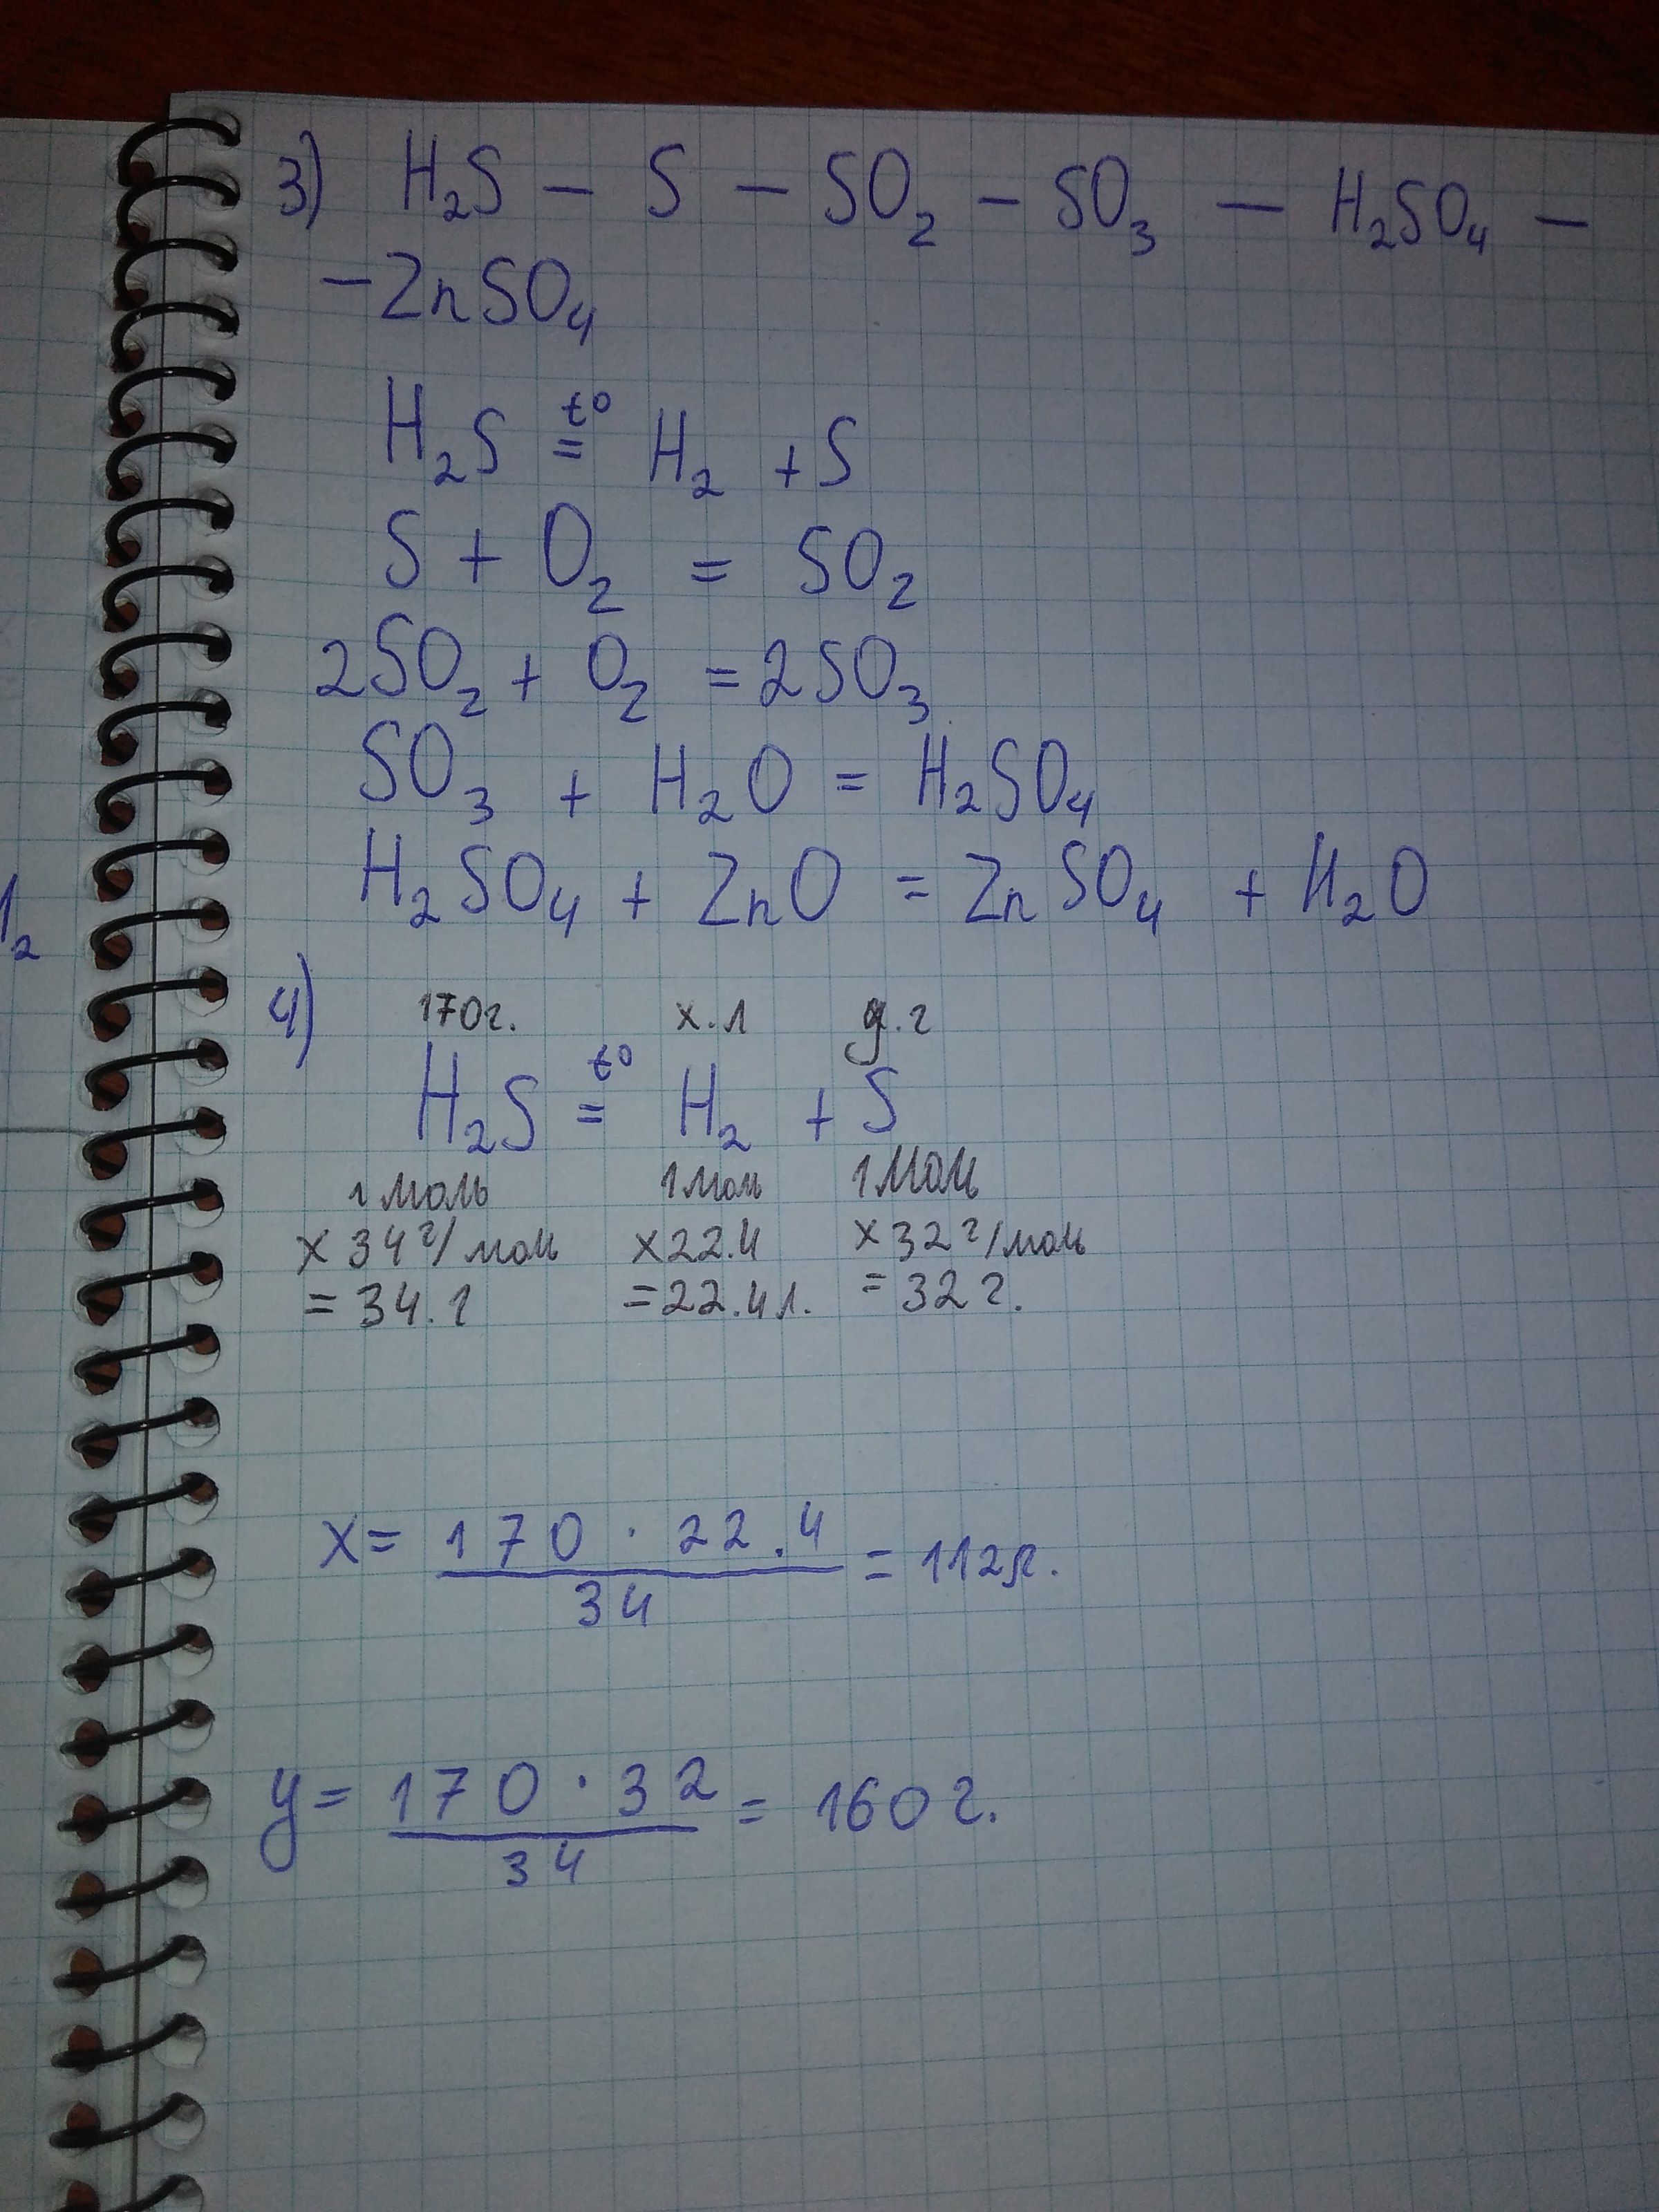 3) H₂S — S — SO₂ — SO₃ — H₂SO₄ —
— ZnSO₄
H₂S t° = H₂ + S
S + O₂ = SO₂
2SO₂ + O₂ = 2SO₃
SO₃ + H₂O = H₂SO₄
H₂SO₄ + ZnO = ZnSO₄ + H₂O
4) 170г. x.л y.г
H₂S t° = H₂ + S
1 моль 1 моль 1 моль
x 34 г/моль x 22.4 x 32 г/моль
= 34.г = 22.4 л. = 32 г.
x = 170 · 22.4 / 34 = 112 л.
y = 170 · 32 / 34 = 160 г.